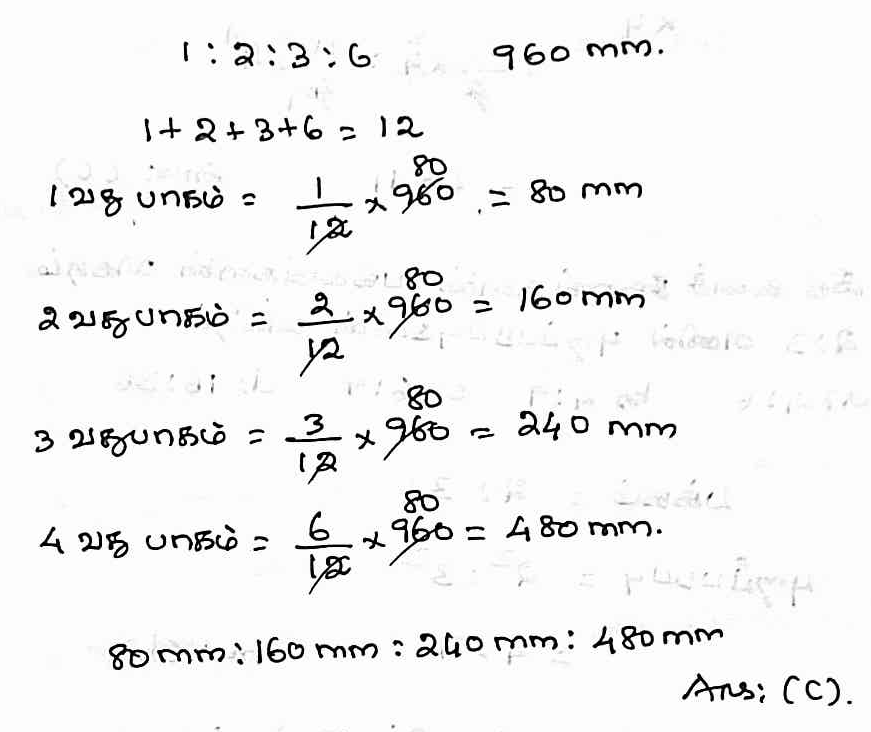 1 : 2 : 3 : 6 960 mm.
1 + 2 + 3 + 6 = 12
1 வது பாகம் = 1/12 x 960 80 = 80 mm
2 வது பாகம் = 2/12 x 960 80 = 160 mm
3 வது பாகம் = 3/12 x 960 80 = 240 mm
4 வது பாகம் = 6/12 x 960 80 = 480 mm.
80 mm : 160 mm : 240 mm : 480 mm
Ans: (C).